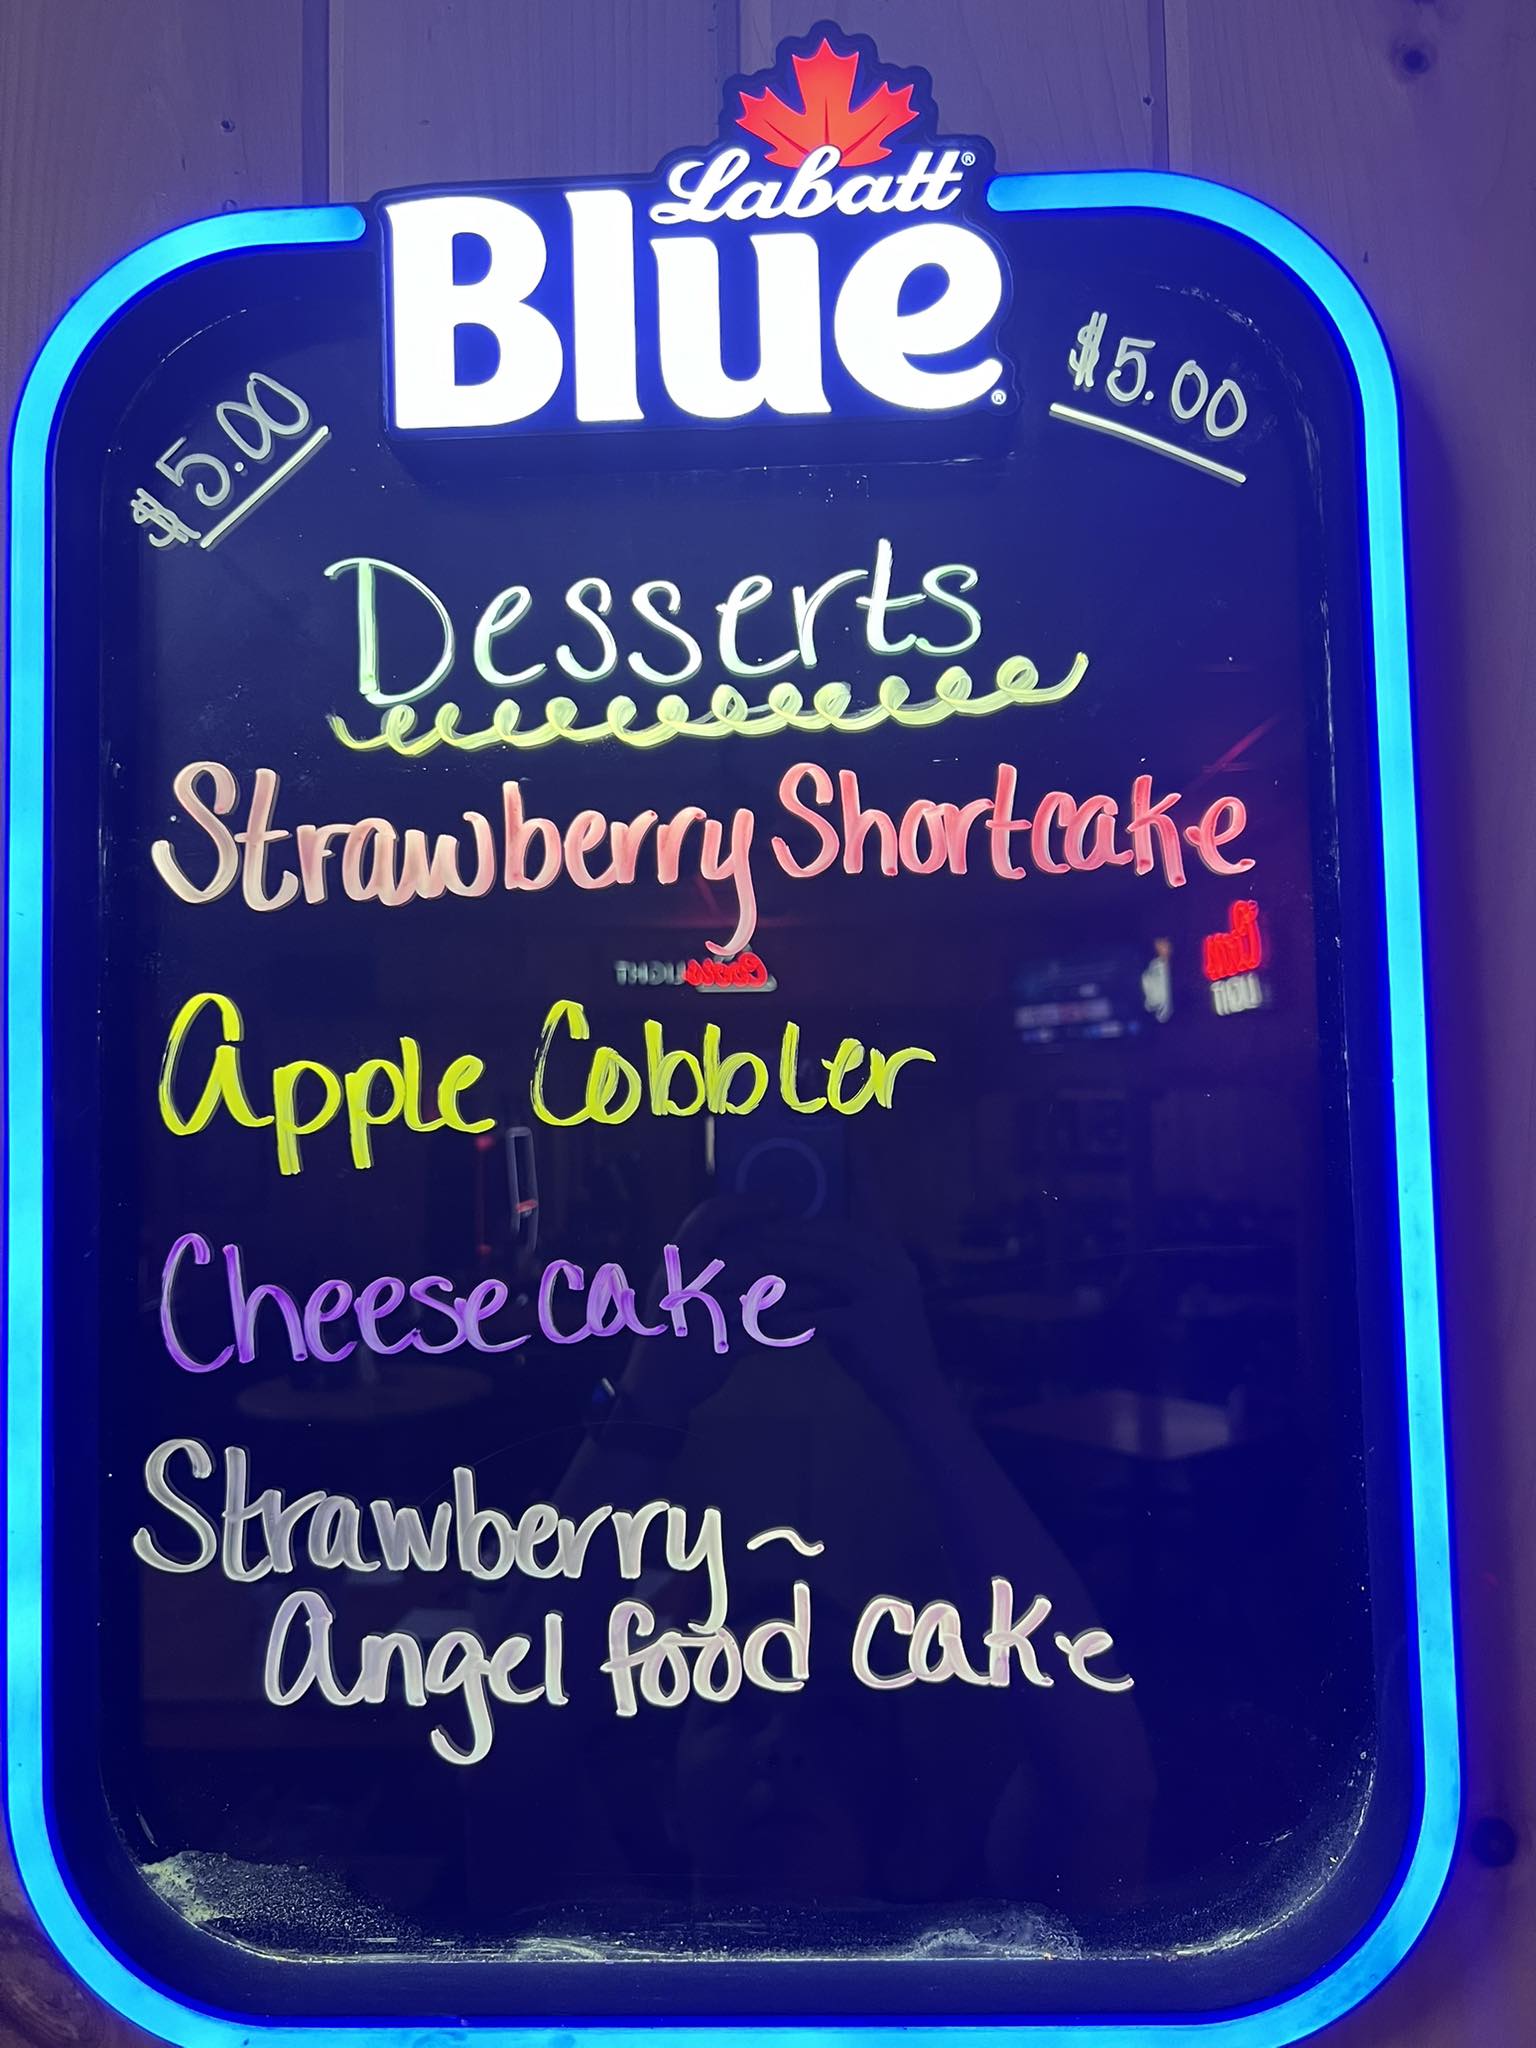 Labatt®
Blue®
$5.00
$5.00
Desserts
Strawberry Shortcake
Apple Cobbler
Cheesecake
Strawberry ~
Angel food cake